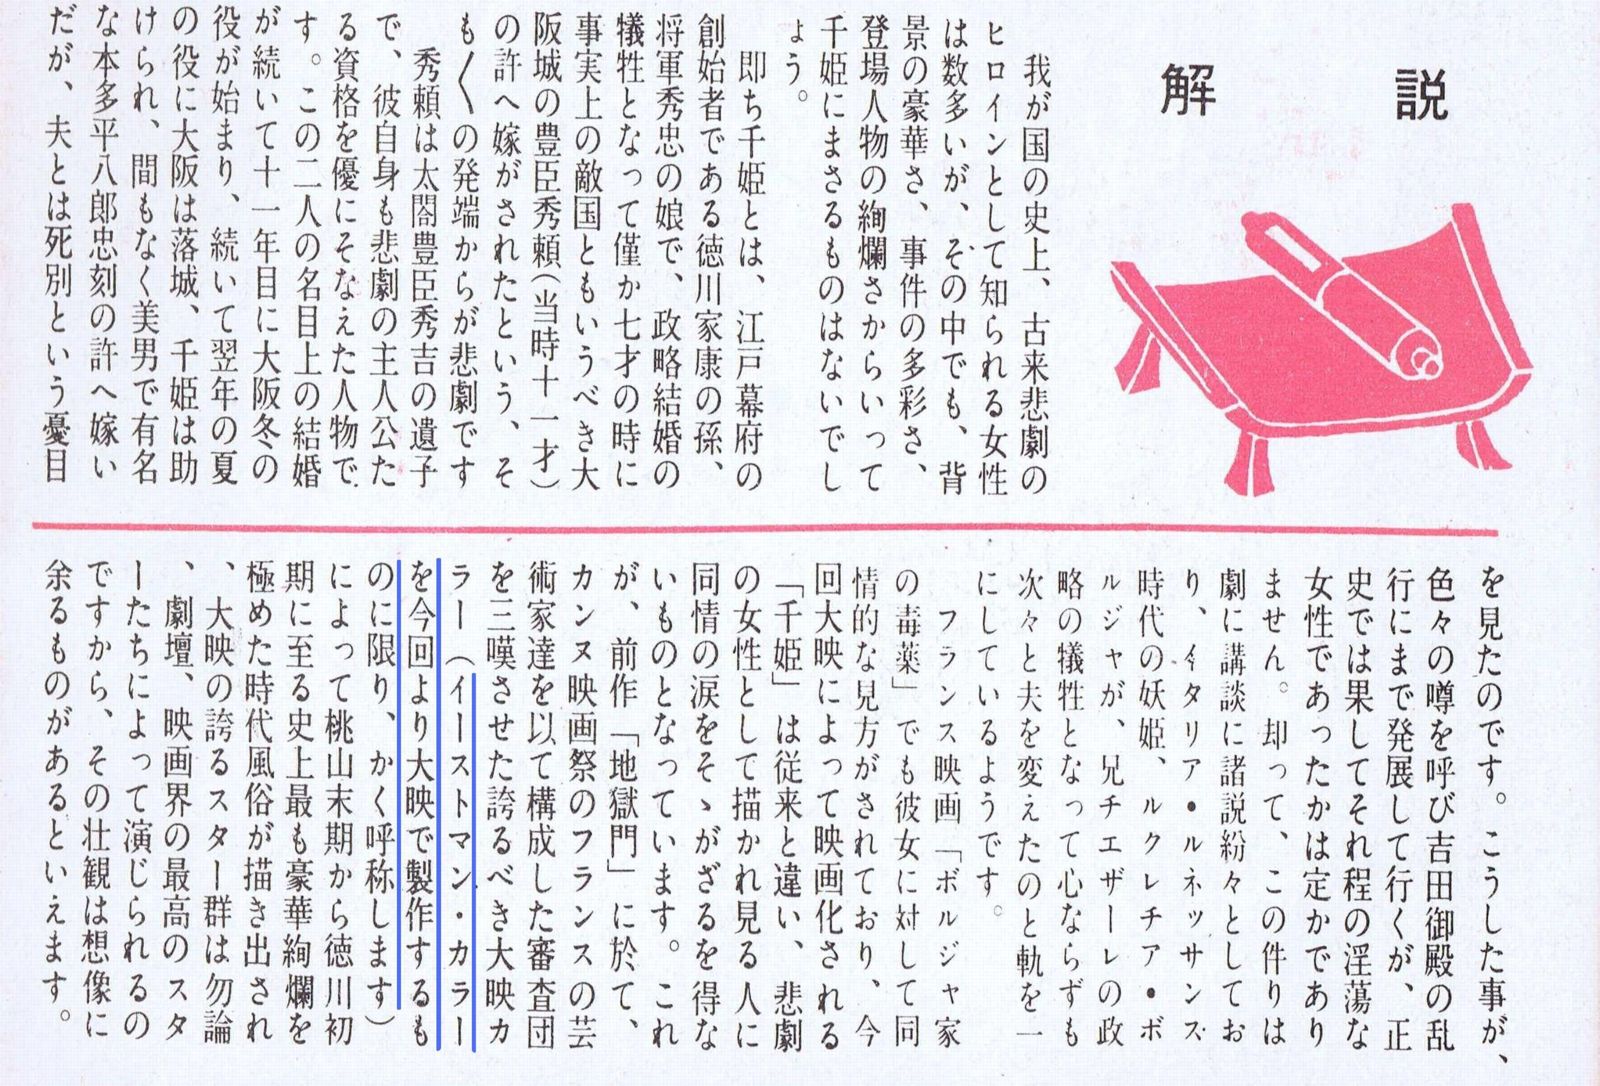 解説
我が国の史上、古来悲劇の
ヒロインとして知られる女性
は数多いが、その中でも、背
景の豪華さ、事件の多彩さ、
登場人物の絢爛さからいって
千姫にまさるものはないでし
ょう。
即ち千姫とは、江戸幕府の
創始者である徳川家康の孫、
将軍秀忠の娘で、政略結婚の
犠牲となって僅か七才の時に
事実上の敵国ともいうべき大
阪城の豊臣秀頼(当時十一才)
の許へ嫁がされたという、そ
も〳〵の発端からが悲劇です
秀頼は太閤豊臣秀吉の遺子
で、彼自身も悲劇の主人公た
る資格を優にそなえた人物で
す。この二人の名目上の結婚
が続いて十一年目に大阪冬の
役が始まり、続いて翌年の夏
の役に大阪は落城、千姫は助
けられ、間もなく美男で有名
な本多平八郎忠刻の許へ嫁い
だが、夫とは死別という憂目
を見たのです。こうした事が、
色々の噂を呼び吉田御殿の乱
行にまで発展して行くが、正
史では果してそれ程の淫蕩な
女性であったかは定かであり
ません。却って、この件りは
劇に講談に諸説紛々としてお
り、イタリア・ルネッサンス
時代の妖姫、ルクレチア・ボ
ルジャが、兄チエザーレの政
略の犠牲となって心ならずも
次々と夫を変えたのと軌を一
にしているようです。
フランス映画「ボルジャ家
の毒薬」でも彼女に対して同
情的な見方がされており、今
回大映によって映画化される
「千姫」は従来と違い、悲劇
の女性として描かれ見る人に
同情の涙をそゝがざるを得な
いものとなっています。これ
が、前作「地獄門」に於て、
カンヌ映画祭のフランスの芸
術家達を以て構成した審査団
を三嘆させた誇るべき大映カ
ラー(イーストマン・カラー
を今回より大映で製作するも
のに限り、かく呼称します)
によって桃山末期から徳川初
期に至る史上最も豪華絢爛を
極めた時代風俗が描き出され
、大映の誇るスター群は勿論
、劇壇、映画界の最高のスタ
ーたちによって演じられるの
ですから、その壮観は想像に
余るものがあるといえます。